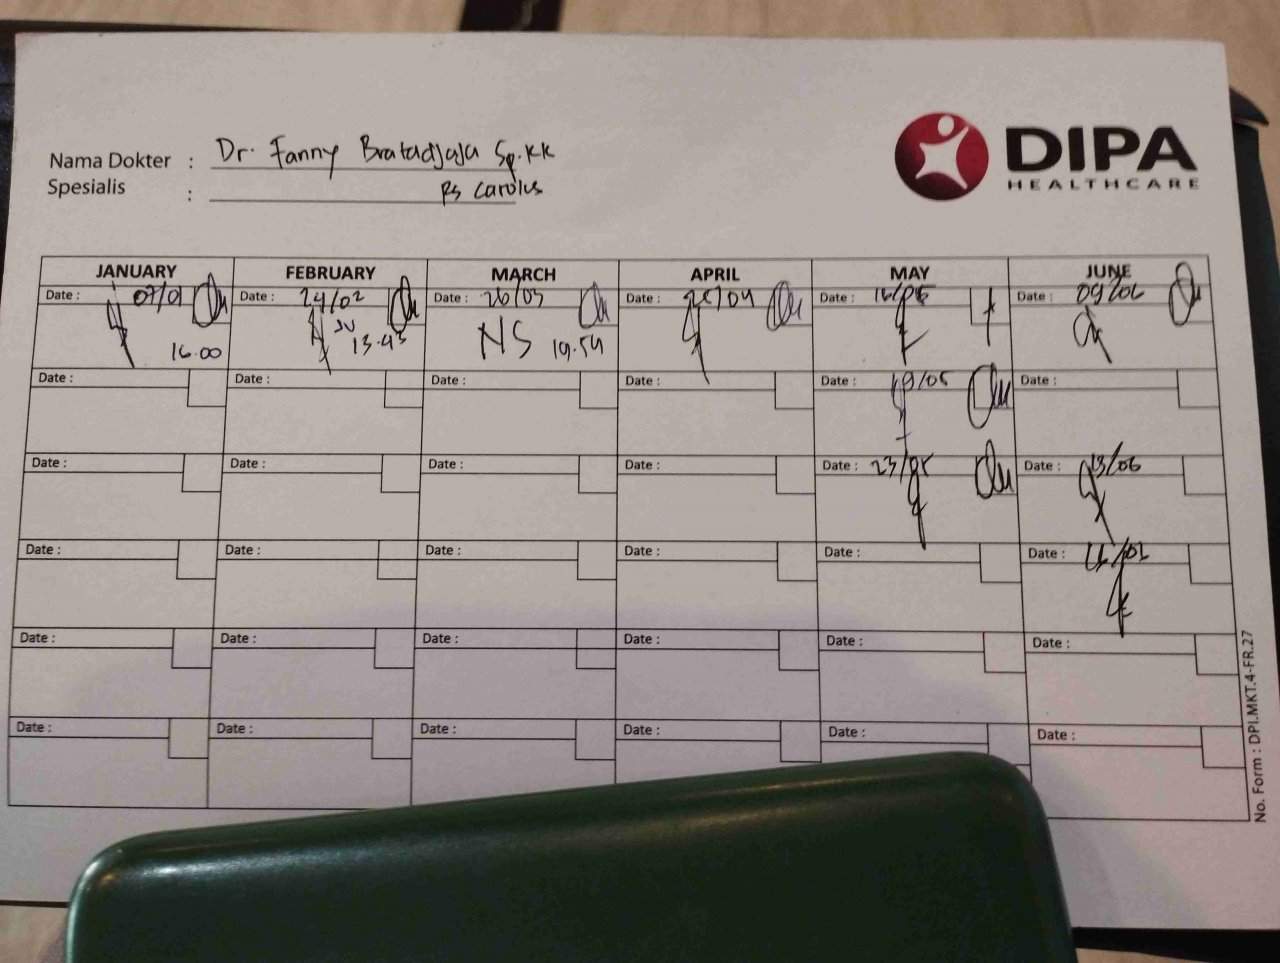 DIPA
HEALTHCARE
Nama Dokter : Dr. Fanny Bratadjaja Sp.KK
Spesialis : RS Carolus
JANUARY FEBRUARY MARCH APRIL MAY JUNE
Date : 07/01 Date : 24/02 Date : 26/03 Date : /04 Date : 16/05 Date : 09/06
16.00 13.43 NS 19.54
Date : Date : Date : Date : Date : 19/05 Date :
Date : Date : Date : Date : Date : 23/05 Date : 13/06
Date : Date : Date : Date : Date : Date :
Date : Date : Date : Date : Date : Date :
Date : Date : Date : Date : Date : Date :
No. Form : DPI.MKT.4-FR.27